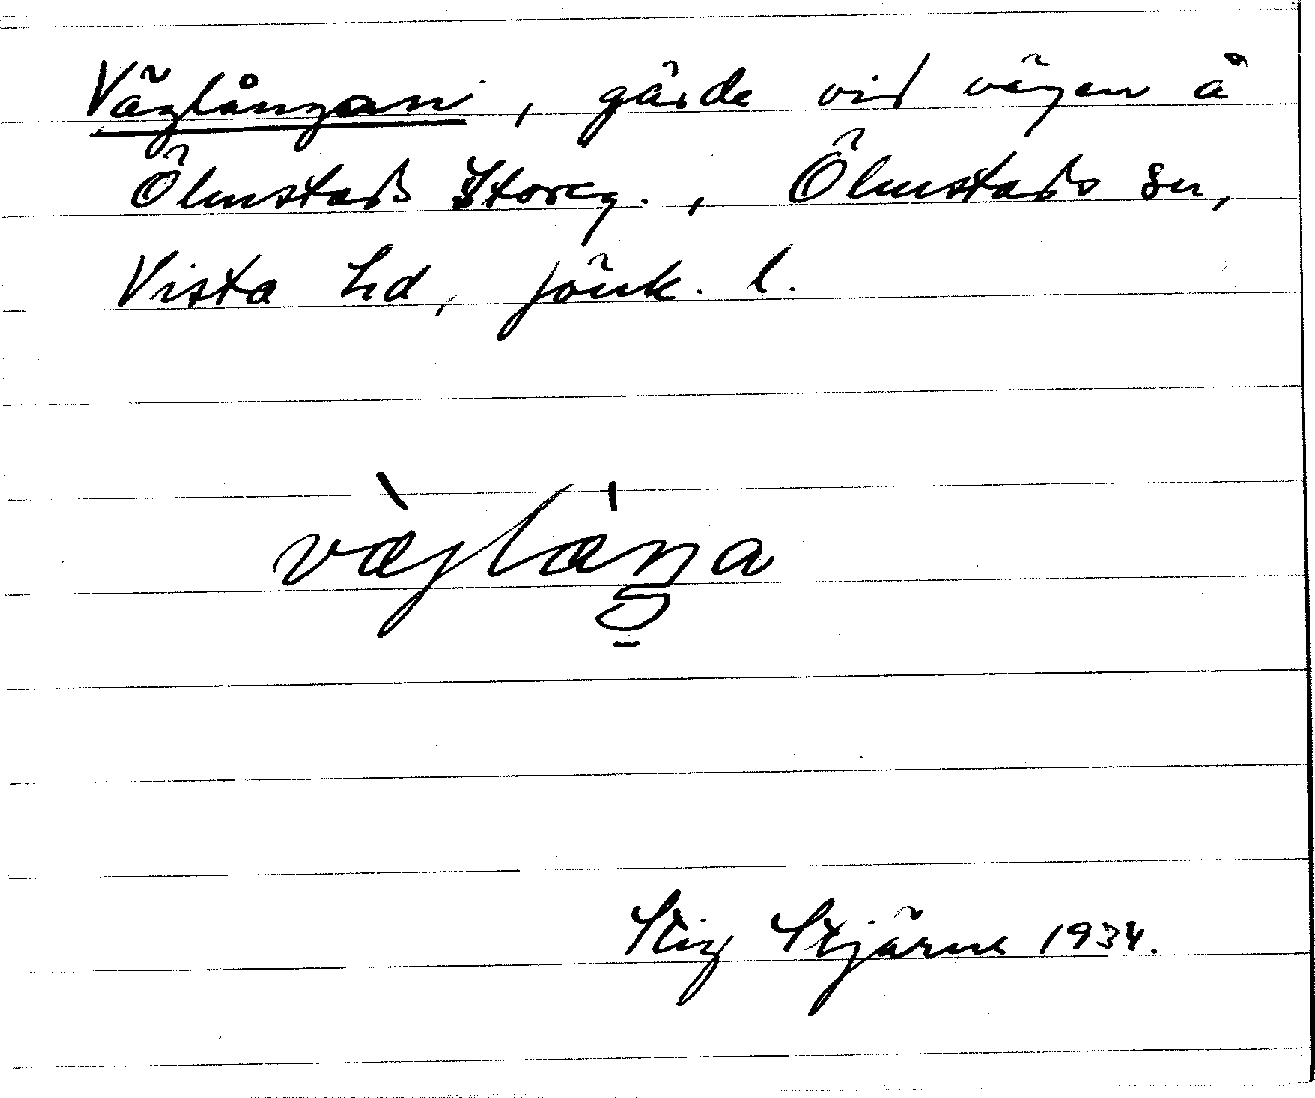 Väglångan, gärde vid vägen å
Ölmstads Storeg., Ölmstads sn,
Vista hd, Jönk. l.
væ̀jlǽŋa
Stig Stjärne 1934.